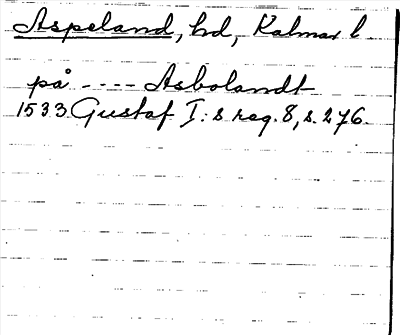 Aspeland, hd, Kalmar l
på ---- Asbolandt
1533 Gustaf I:s reg. 8, s. 276.